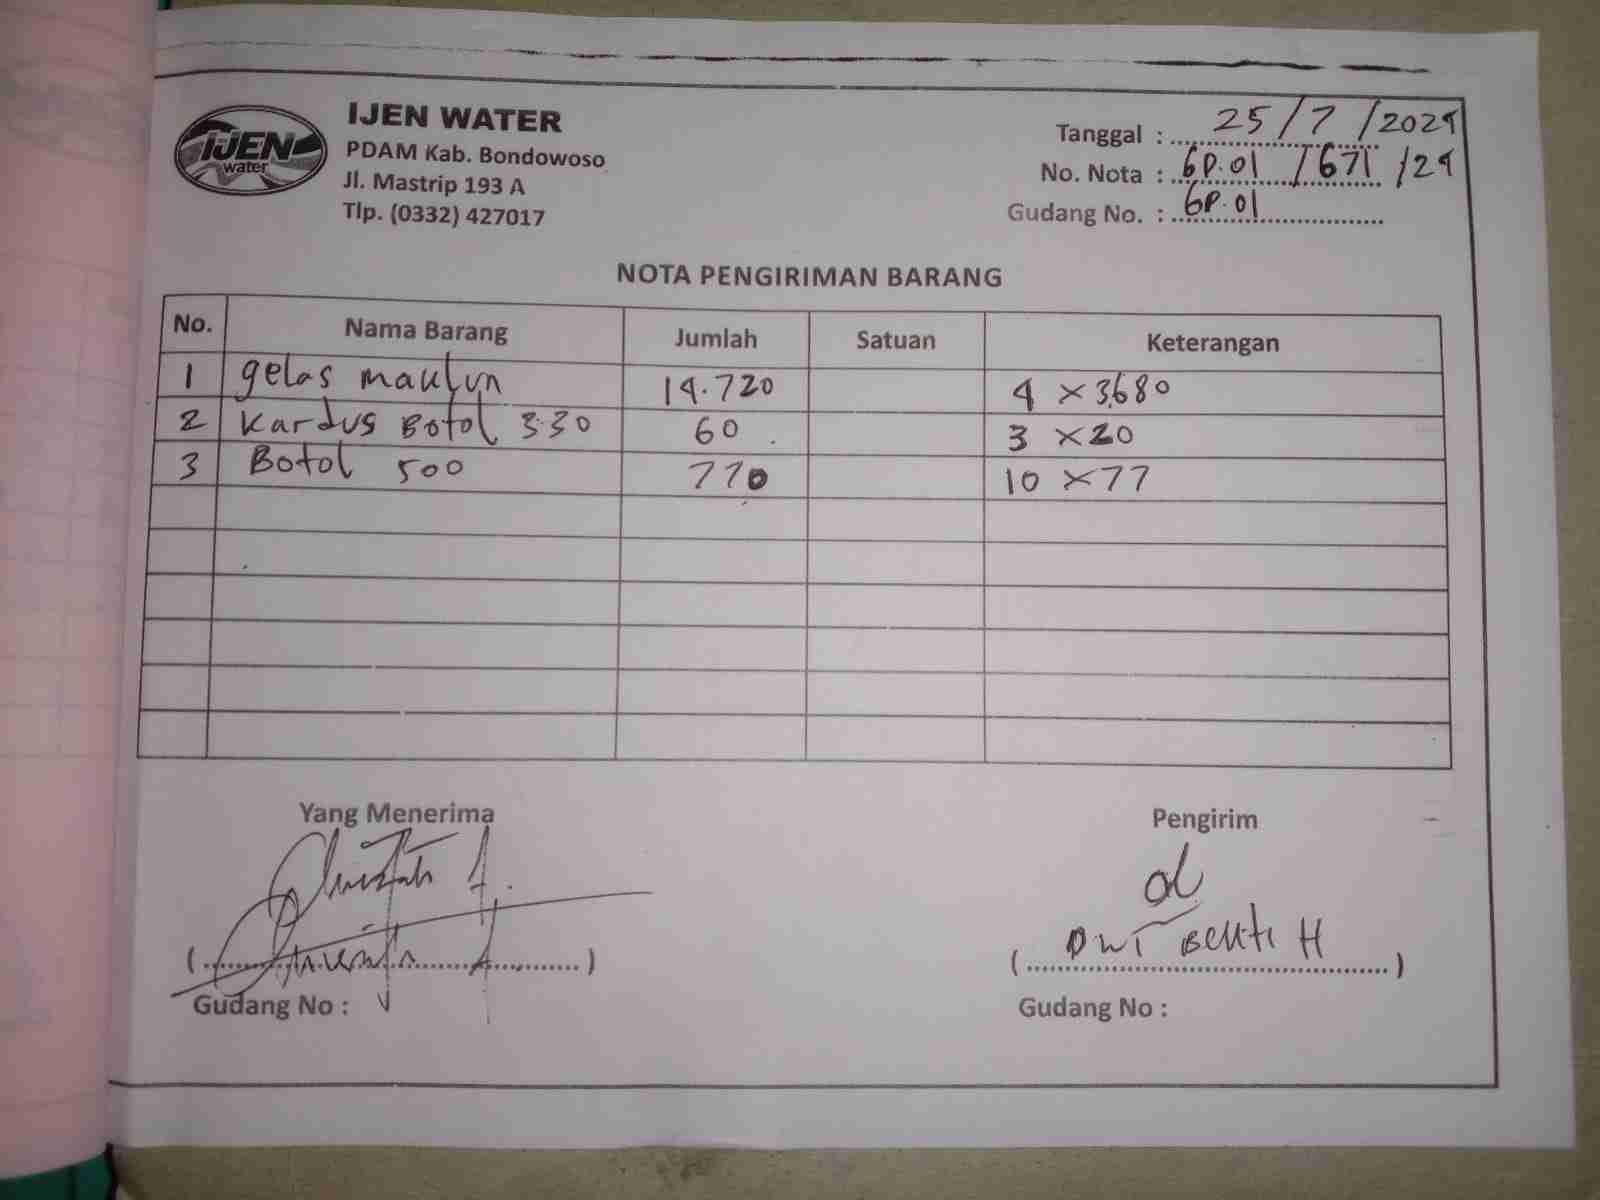 IJEN
water
IJEN WATER
PDAM Kab. Bondowoso
Jl. Mastrip 193 A
Tlp. (0332) 427017
Tanggal : 25/7/2024
No. Nota : GP.01/671/24
Gudang No. : GP.01
NOTA PENGIRIMAN BARANG
No. Nama Barang Jumlah Satuan Keterangan
1 gelas maklun 14.720 4 x 3.680
2 Kardus Botol 330 60 3 x 20
3 Botol 500 770 10 x 77
Yang Menerima Pengirim
( ) ( DWI Bekti H )
Gudang No : Gudang No :